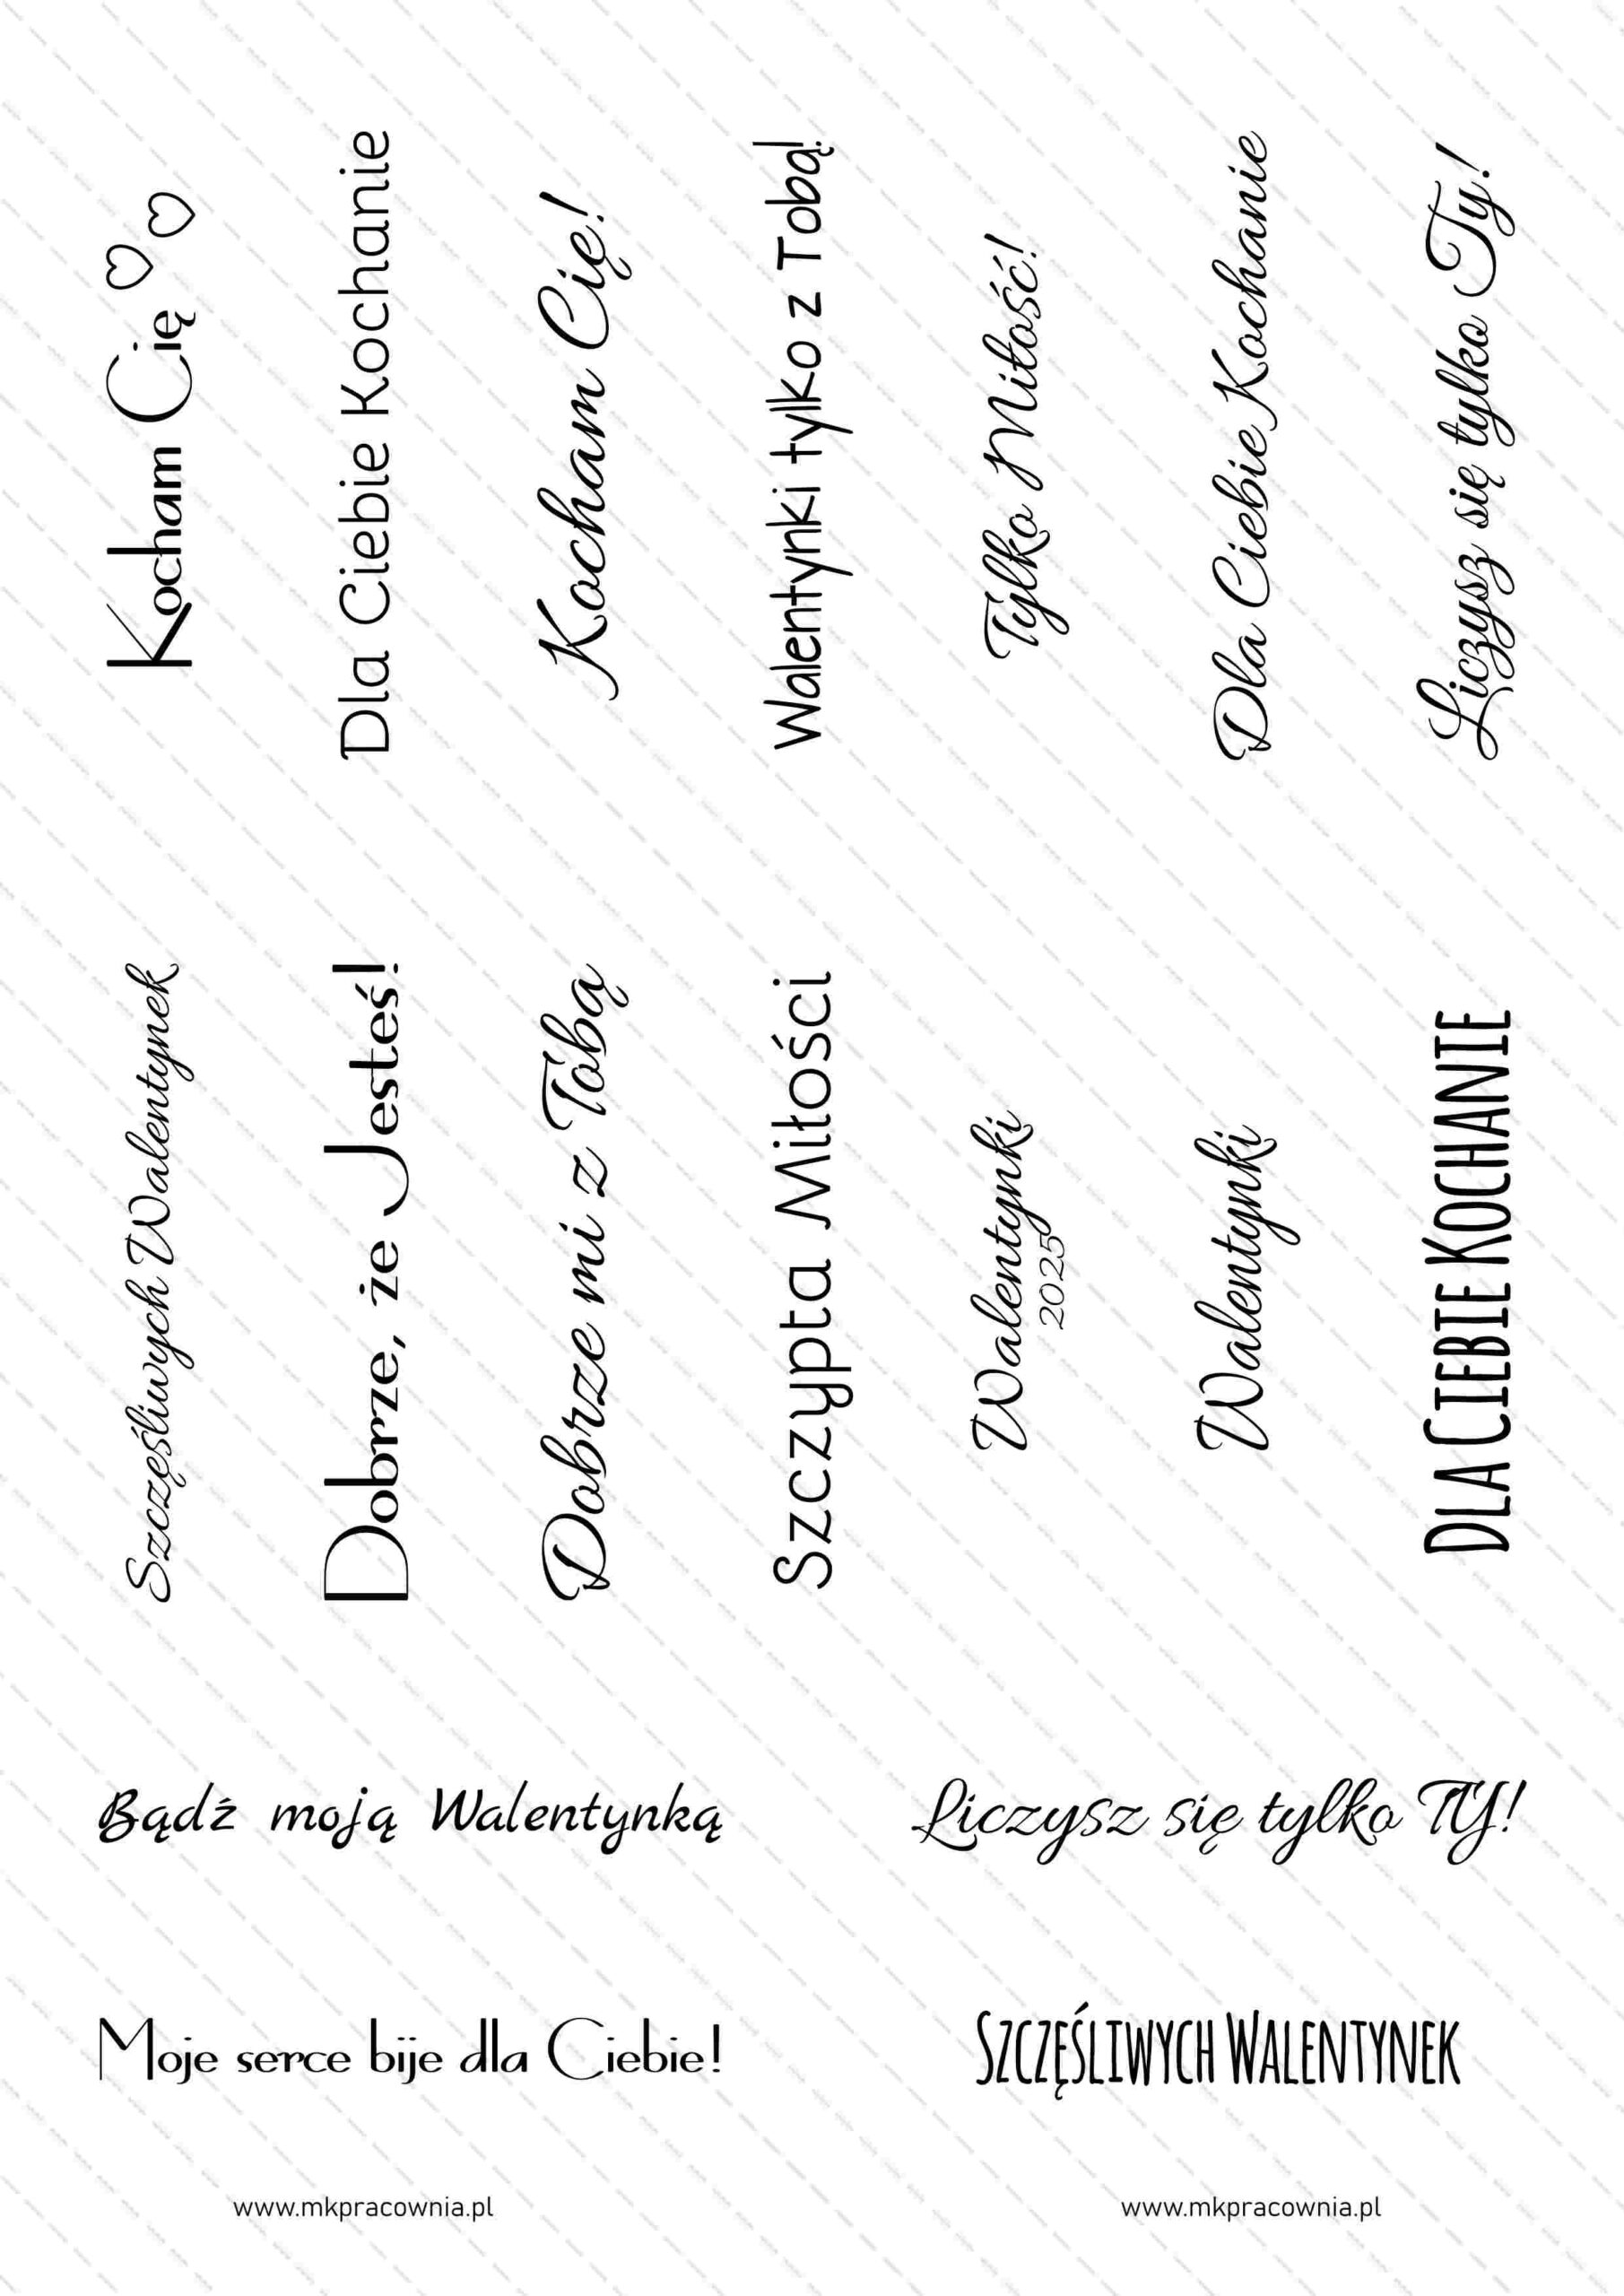 Kocham Cię
Dla Ciebie Kochanie
Kocham Cię!
Walentynki tylko z Tobą!
Tylko Miłość!
Dla Ciebie Kochanie
Liczysz się tylko Ty!
Szczęśliwych Walentynek
Dobrze, że Jesteś!
Dobrze mi z Tobą
Szczypta Miłości
Walentynki
2025
Walentynki
DLA CIEBIE KOCHANIE
Bądź moją Walentynką
Liczysz się tylko TY!
Moje serce bije dla Ciebie!
SZCZĘŚLIWYCH WALENTYNEK
www.mkpracownia.pl
www.mkpracownia.pl